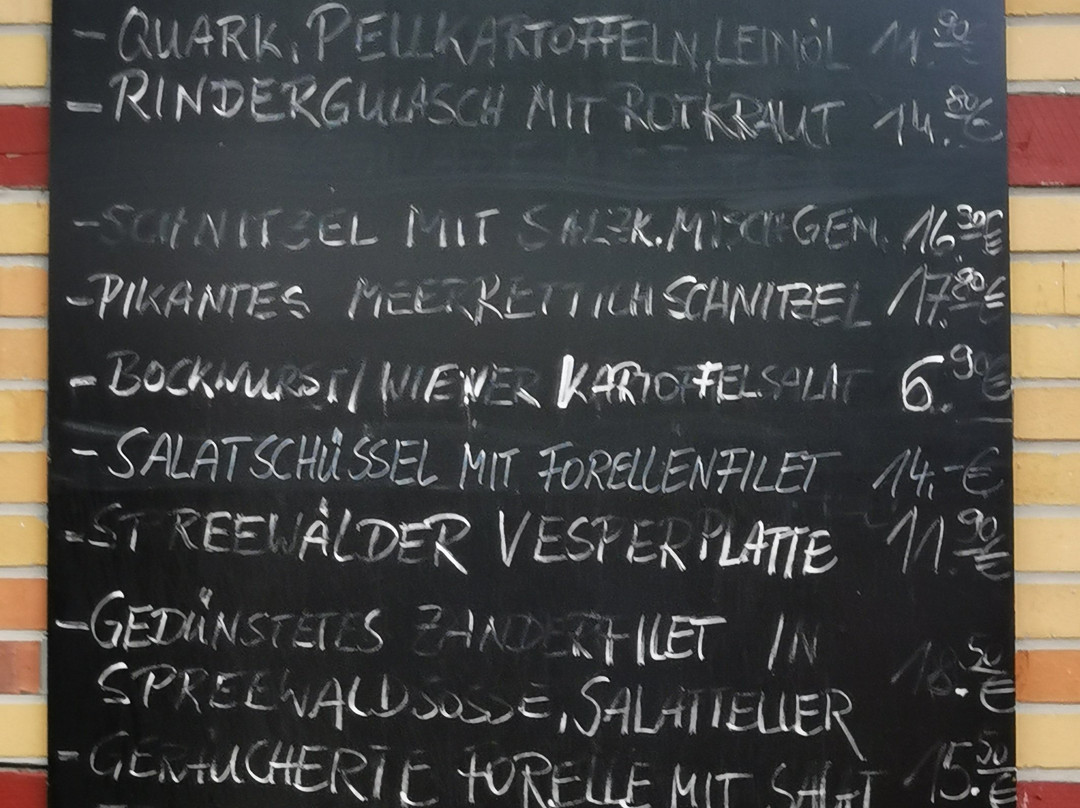 - QUARK, PELLKARTOFFELN, LEINÖL 11.90€
- RINDERGULASCH MIT ROTKRAUT 14.80€
- SCHNITZEL MIT SALZK. MISCHGEM. 16.50€
- PIKANTES MEERRETTICHSCHNITZEL 17.80€
- BOCKWURST/WIENER KARTOFFELSALAT 6.90€
- SALATSCHÜSSEL MIT FORELLENFILET 14.-€
- SPREEWÄLDER VESPERPLATTE 11.90€
- GEDÜNSTETES ZANDERFILET IN
SPREEWALDSOSSE, SALATTELLER 18.50€
- GERÄUCHERTE FORELLE MIT SALAT 15.50€